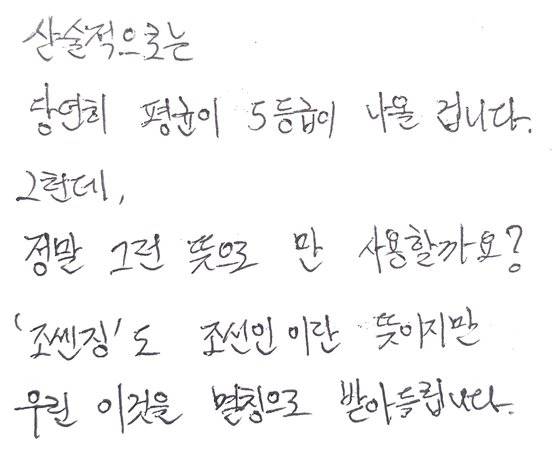 산술적으로는
당연히 평균이 5등급이 나올 겁니다.
그런데,
정말 그런 뜻으로 만 사용할까요?
'조센징'도 조선인 이란 뜻이지만
우린 이것을 멸칭으로 받아들립니다.